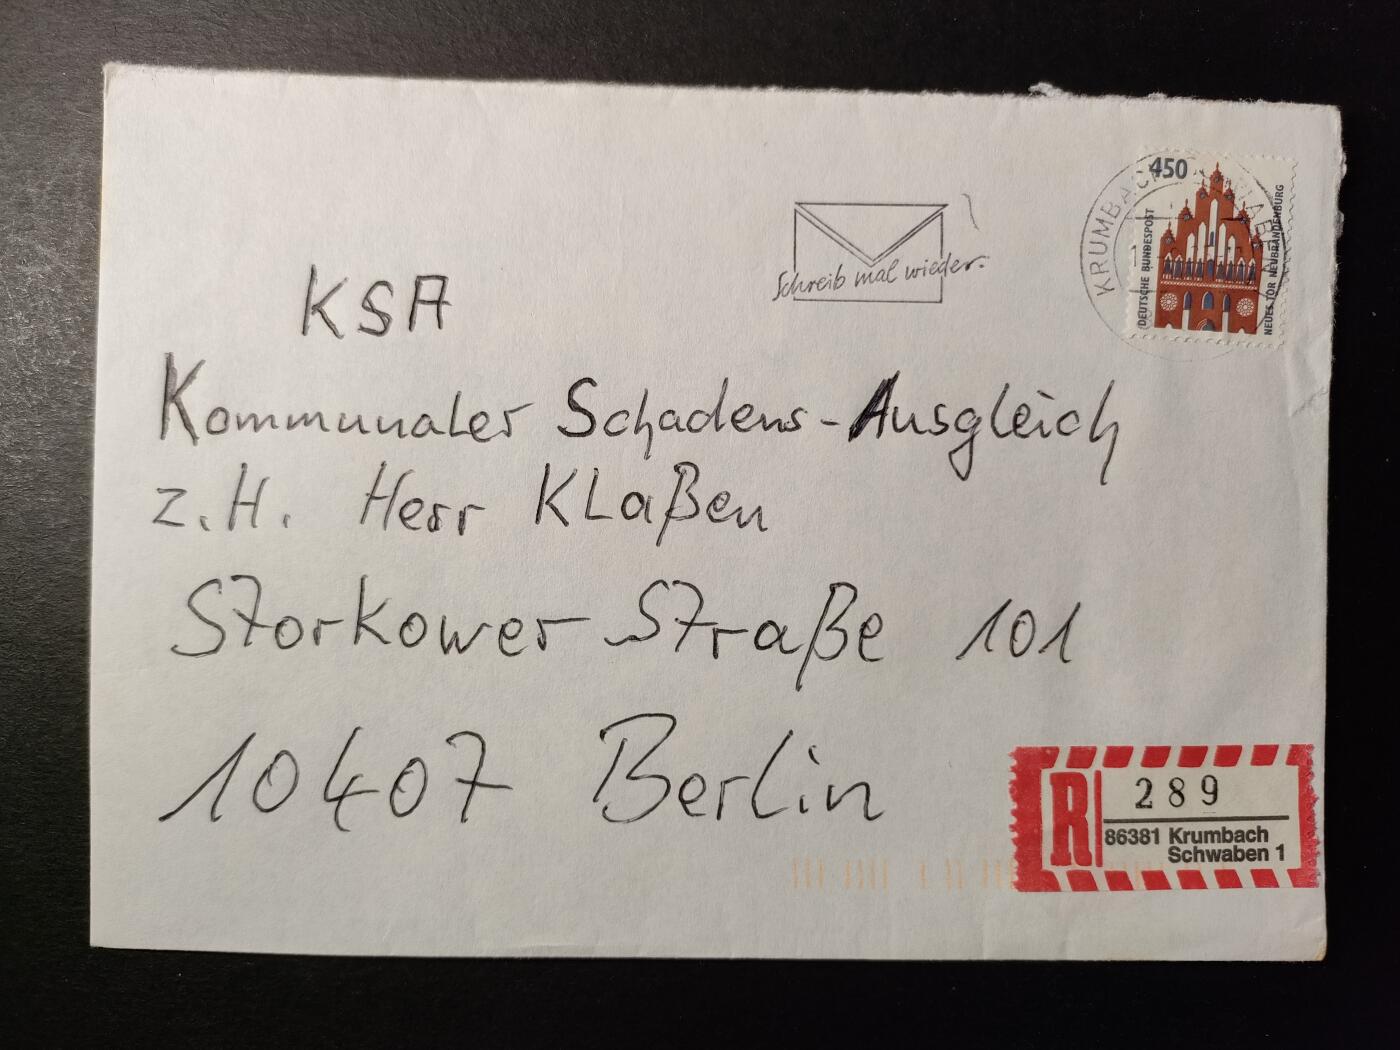 450
KRUMBACH
DEUTSCHE BUNDESPOST
NEUES TOR NEUBRANDENBURG
Schreib mal wieder.
KSA
Kommunaler Schadens-Ausgleich
z.H. Herr Klaßen
Storkower Straße 101
10407 Berlin
R 289
86381 Krumbach
Schwaben 1